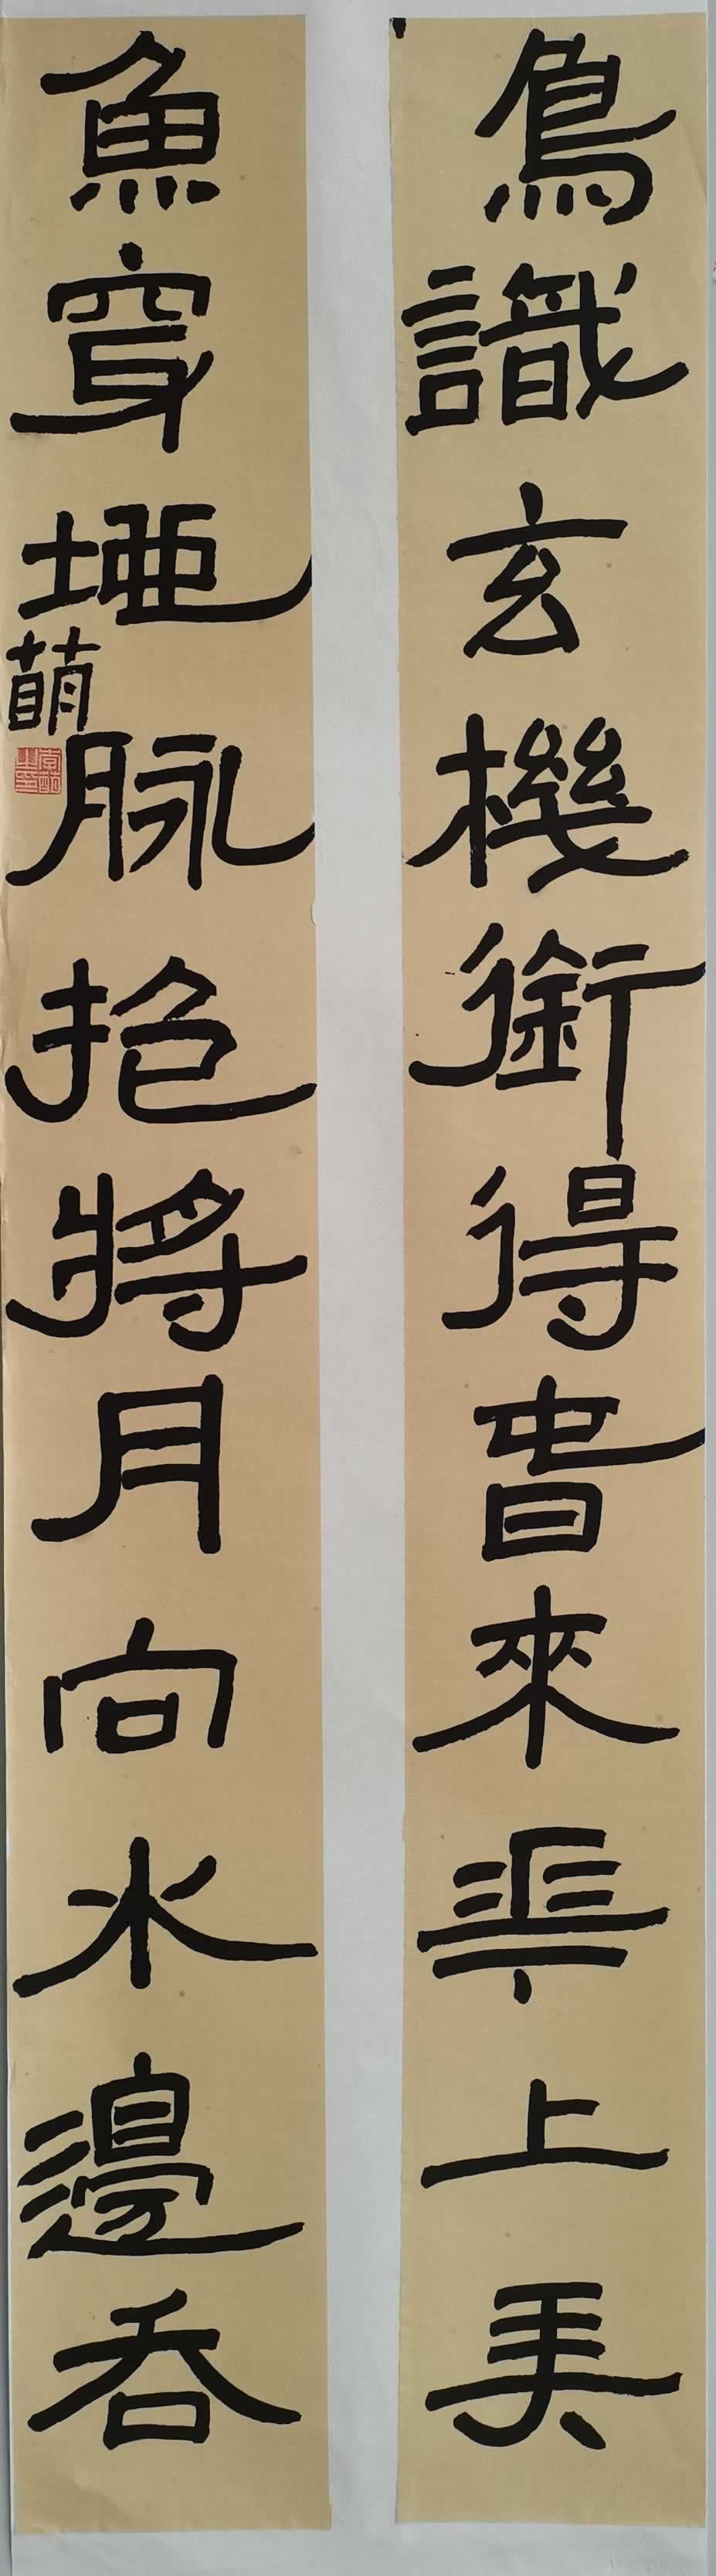 鳥識玄機銜得旾來華上弄
魚穿地脉挹將月向水邊吞
萌